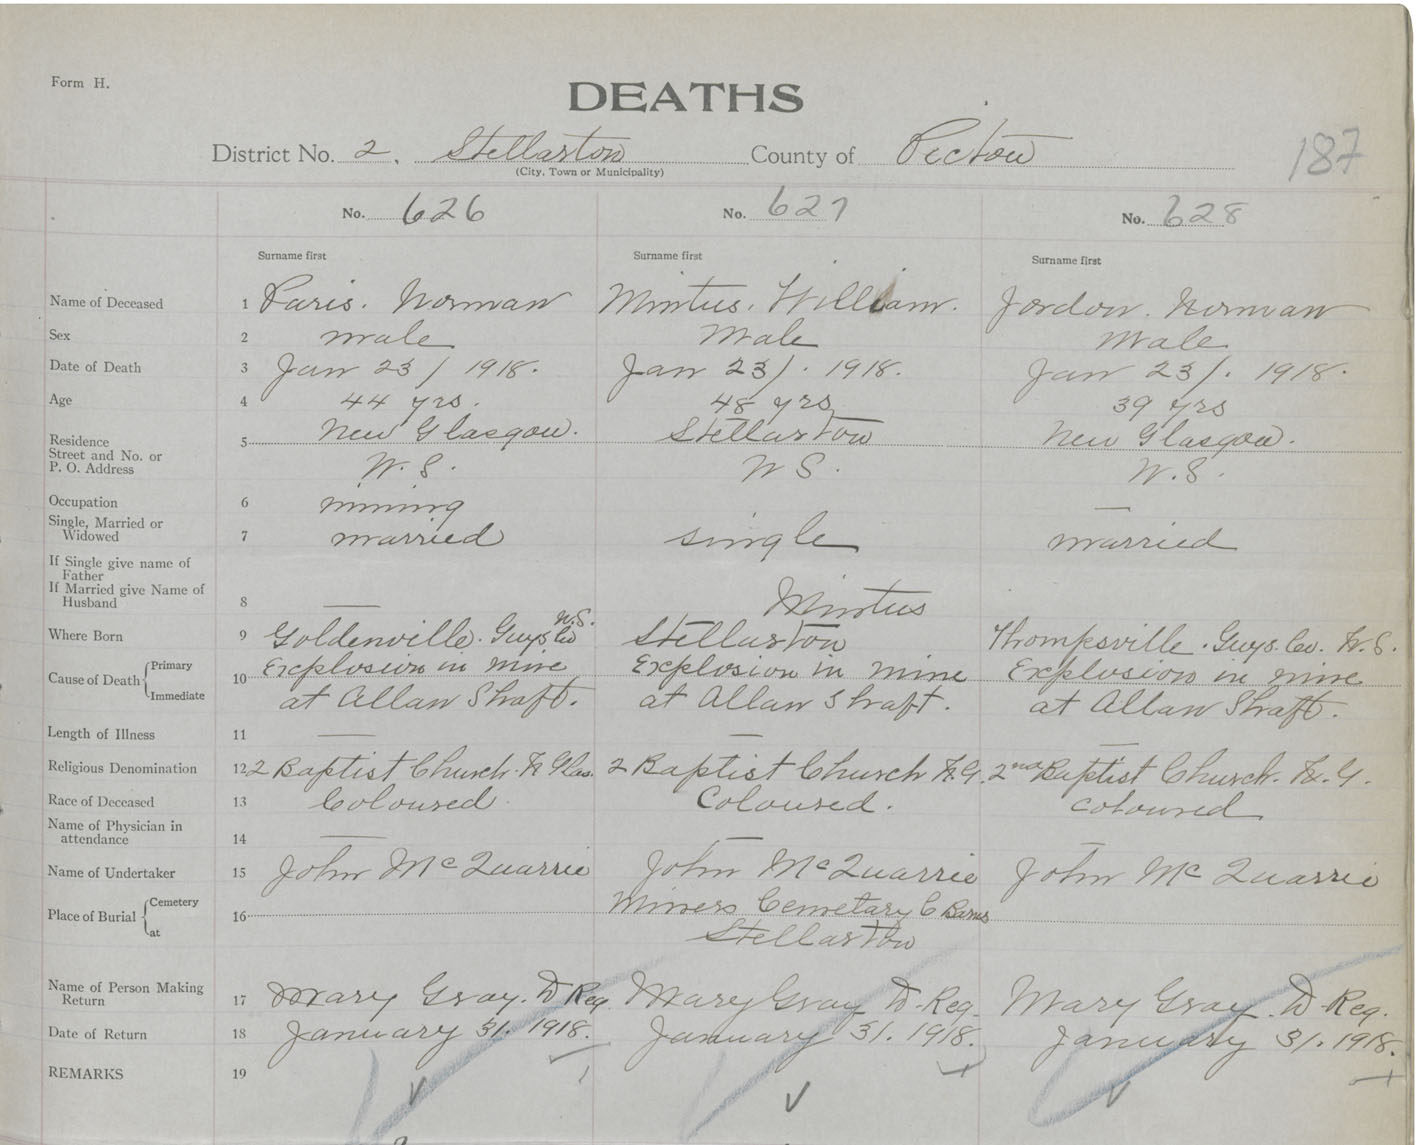 Form H.
DEATHS
District No. 2. Stellarton County of Pictou
(City, Town or Municipality)
187
No. 626 No. 627 No. 628
Surname first Surname first Surname first
Name of Deceased 1 Paris. Norman Mintus. William. Jordon. Norman
Sex 2 male Male Male
Date of Death 3 Jan 23/1918. Jan 23/. 1918. Jan 23/. 1918.
Age 4 44 yrs. 48 yrs 39 yrs
Residence 5 New Glasgow. Stellarton New Glasgow.
Street and No. or
P. O. Address N. S. N S. N. S.
Occupation 6 mining —
Single, Married or
Widowed 7 married single married
If Single give name of
Father
If Married give Name of
Husband 8 — Mintus
Where Born 9 Goldenville. Guys Co N.S. Stellarton Thompsville. Guys. Co. N. S.
Cause of Death { Primary 10 Explosion in mine Explosion in mine Explosion in mine
Immediate at Allan Shaft. at Allan Shaft. at Allan Shaft.
Length of Illness 11 — — —
Religious Denomination 12 2 Baptist Church. N Glas. 2 Baptist Church N. G. 2nd Baptist Church. N. G.
Race of Deceased 13 Coloured Coloured. coloured
Name of Physician in
attendance 14 — — —
Name of Undertaker 15 John McQuarrie John McQuarrie John McQuarrie
Place of Burial { Cemetery 16 Miners Cemetary C
at Stellarton
Name of Person Making
Return 17 Mary Gray. D Reg. Mary Gray D. Reg. Mary Gray. D. Reg.
Date of Return 18 January 31. 1918. January 31. 1918. January 31. 1918.
REMARKS 19